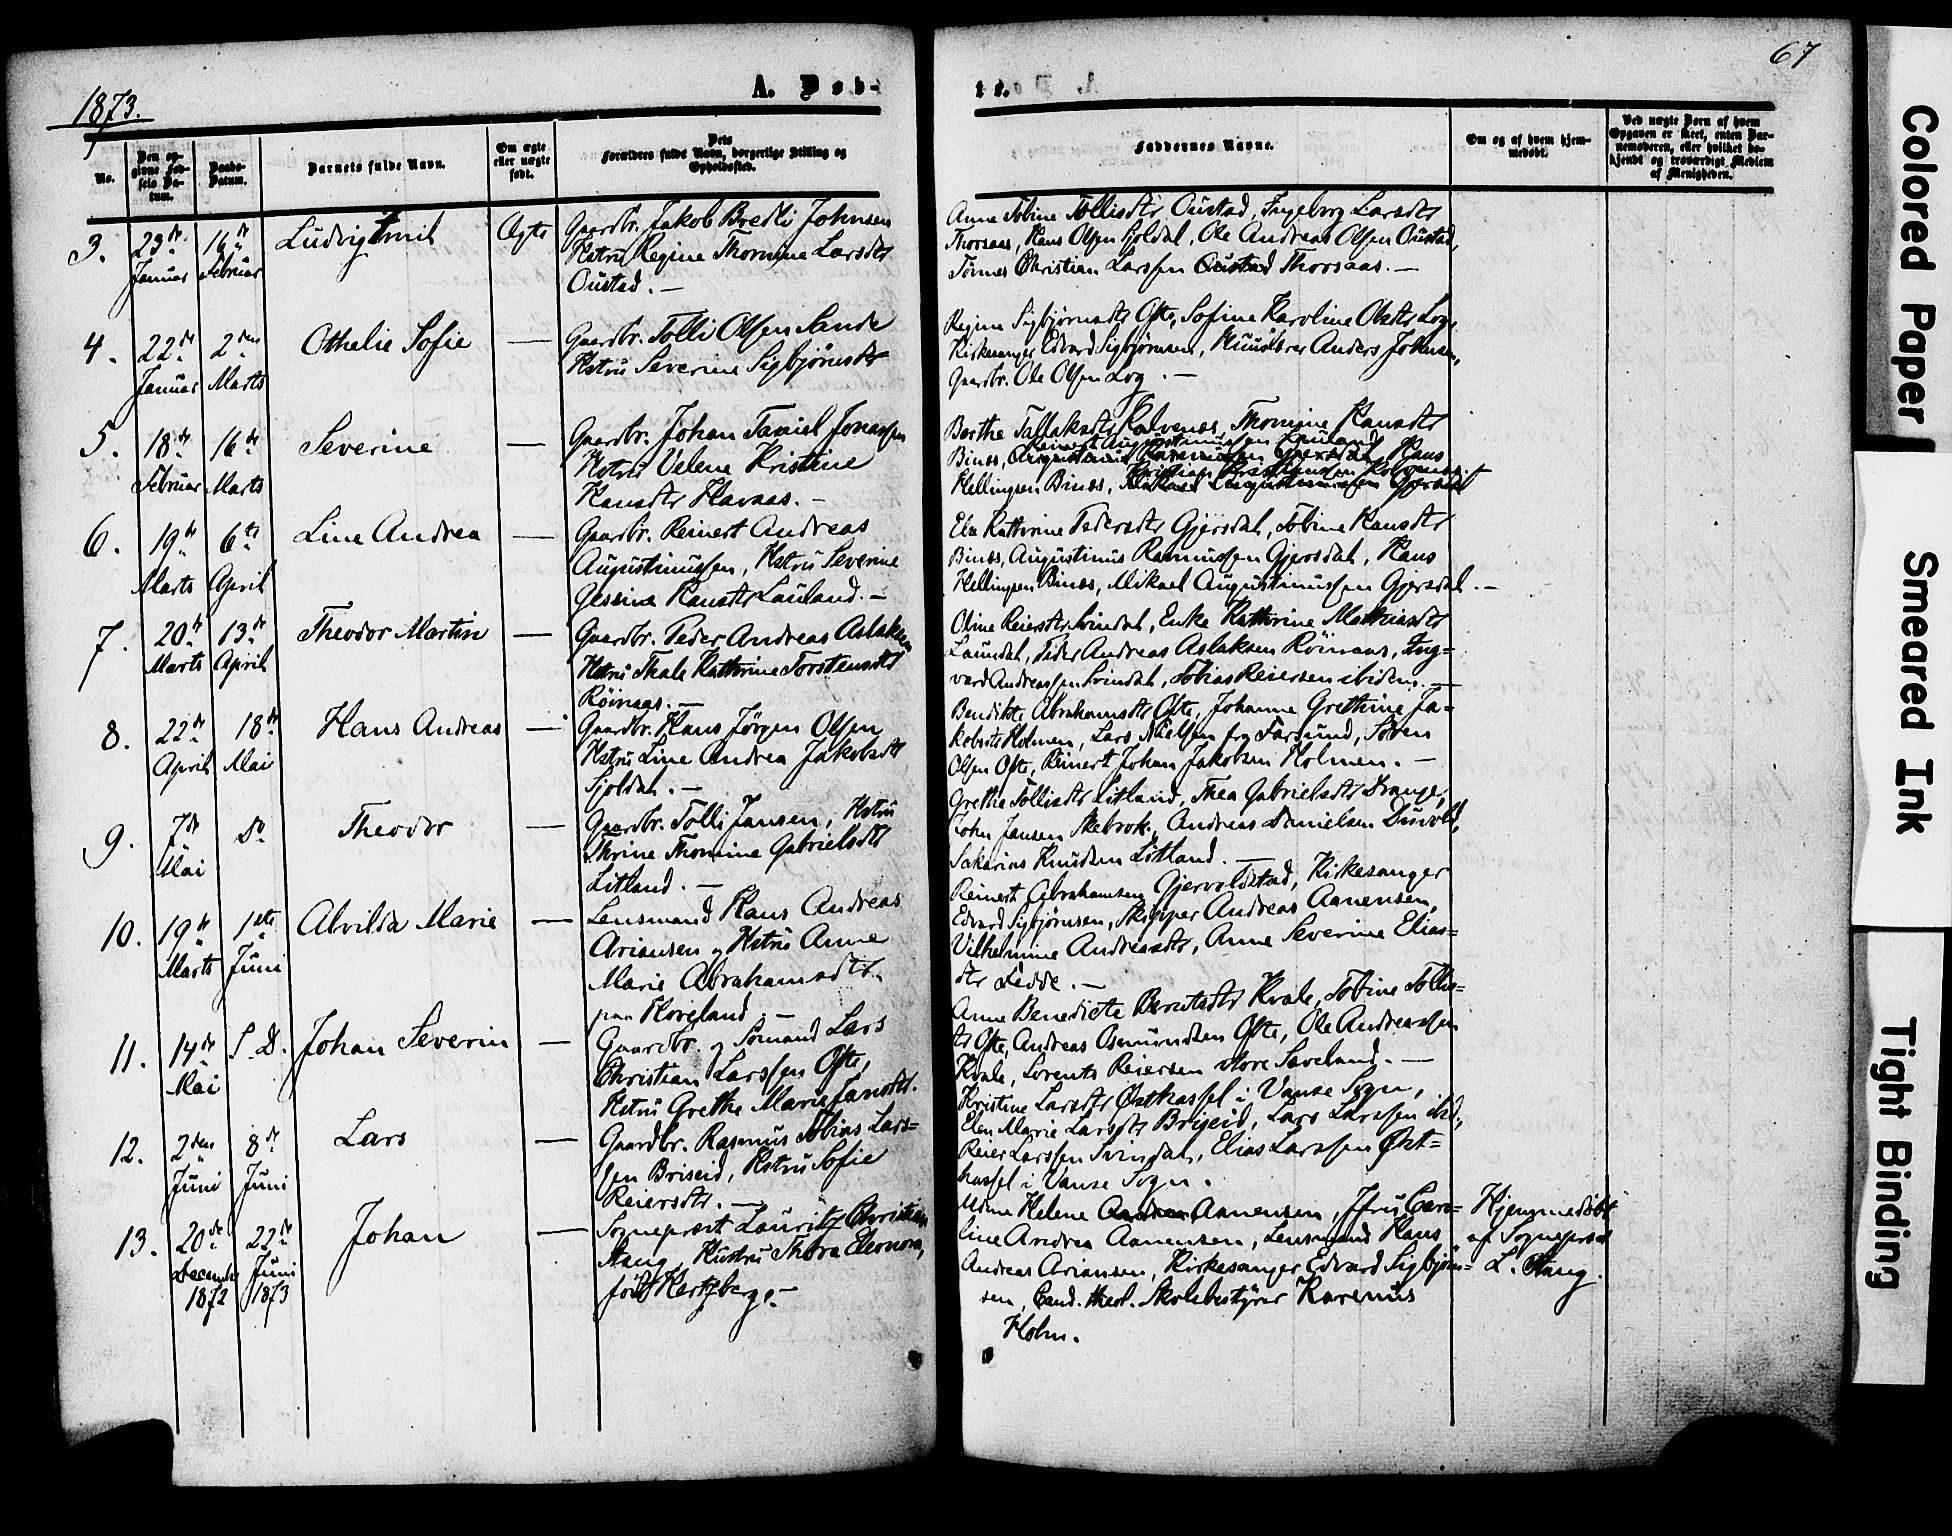 67
1873.
A. Døb-
te.
No.
Den op-
givne Fød-
sels Da-
tum.
Daabs-
Datum.
Barnets fulde Navn.
Om ægte
eller uægte
født.
Dets
Forældres fulde Navn, borgerlige Stilling og
Opholdssted.
Faddernes Navne.
Om og af hvem hjem-
medøbt.
Ved uægte Børn af hvem
Opgaven er skeet, enten Bar-
nemoderen, eller hvilket be-
kjendt og troværdigt Medlem
af Menigheden.
3.
23de
Januar
16de
Februar
Ludvig Emil
Ægte
Gaardbr. Jakob Bredli Johnsen
Hstru Regine Thomine Larsdtr
Oustad. —
Anne Tobine Tollisdtr Oustad, Ingeborg Larsdtr
Thorsaas, Hans Olsen Sjoldal, Ole Andreas Olsen Oustad,
Tønnes Christian Larssen Oustad Thorsaas. —
4.
22de
Januar
2den
Marts
Othelie Sofie
—
Gaardbr. Tolli Olsen Sande
Hstru Severine Sigbjørnsdtr
Regine Sigbjørnsdtr Ofte, Sofine Karoline Olsdtr Log,
Kirkesanger Edvard Sigbjørnsen, Anders Johnsen,
Gaardbr. Ole Olsen Log. —
5.
18de
Februar
16de
Marts
Severine
—
Gaardbr. Johan Daniel Jonassen
Hstru Velene Kristine
Hansdtr Havaas. —
Berthe Tallaksdtr Kolvenes, Thomine Hansdtr
Reinert Augustinussen Lauland
Bines, Augustinus Rasmussen Gjersdal, Hans
Kristian Kolvenes. —
Hellingsen Bines, Mikael Augustinussen Gjersdal
6.
19de
Marts
6te
April
Line Andrea
—
Gaardbr. Reinert Andreas
Augustinussen, Hstru Severine
Gessine Hansdtr Lauland. —
Ela Kathrine Pedersdtr Gjersdal, Tobine Hansdtr
Bines, Augustinus Rasmussen Gjersdal, Hans
Hellingsen Bines, Mikael Augustinussen Gjersdal. —
7.
20de
Marts
13de
April
Theodor Martin
—
Gaardbr. Peder Andreas Aslaksen
Hstru Thale Kathrine Torstensdtr
Röinaas. —
Oline Reiersdtr Svindal, Enke Kathrine Mathiasdtr
Laundal, Peder Andreas Aslaksen Röinaas, Ing=
vard Andreassen Svindal, Tobias Reiersen ibidem. —
8.
22de
April
18de
Mai
Hans Andreas
—
Gaardbr. Hans Jørgen Olsen
Hstru Line Andrea Jakobsdtr
Sjoldal. —
Bendikte Abrahamsdtr Ofte, Johanne Grethine Ja=
kobsdtr Holmen, Lars Nielsen fra Farsund, Søren
Olsen Ofte, Reinert Johan Jakobsen Holmen. —
9.
7de
Mai
Do
Theodor
—
Gaardbr. Tolli Jansen, Hstru
Thrine Thomine Gabrielsdtr
Litland. —
Grethe Tollisdtr Litland, Thea Gabrielsdtr Drange,
John Jansen Skebrok, Andreas Danielsen Duvold,
Sakarias Knudsen Litland. —
10.
19de
Marts
1ste
Juni
Alvilda Marie
—
Lensmand Hans Andreas
Ariansen og Hstru Anne
Marie Abrahamsdtr
paa Hoveland. —
Reinert Abrahamsen Gjervoldstad, Kirkesanger
Edvard Sigbjørnsen, Skipper Andreas Aanensen,
Vilhelmine Andreasdtr, Anne Severine Elias=
dtr Fedde. —
11.
14de
Mai
S. D.
Johan Severin
—
Gaardbr. og Sømand Lars
Christian Larssen Ofte,
Hstru Grethe Marie Jansdtr.
Anne Benedicte Berntsdtr Kvale, Tobine Tollis=
dtr Ofte, Andreas Osmundsen Ofte, Ole Andreassen
Kvale, Lorents Reiersen store Saveland. —
12.
2den
Juni
8de
Juni
Lars
—
Gaardbr. Rasmus Tobias Lars=
sen Briseid, Hstru Sofie
Reiersdtr. —
Kristine Larsdtr Østhassel i Vanse Sogn,
Elen Marie Larsdtr Briseid, Lars Larssen ibid.,
Reier Larssen Svindal, Elias Larssen Øst=
hassel i Vanse Sogn.
13.
20de
December
1872
22de
Juni
1873
Johan
—
Sogneprest Lauritz Christian
Stang, Hustru Thora Eleonora,
født Hertzberg. —
Mdme Helene Aanensen, Jfru Caro=
line Andrea Aanensen, Lensmand Hans
Andreas Ariansen, Kirkesanger Edvard Sigbjørn=
sen, Cand. theol. Skolebestyrer Rasmus
Holm.
Hjemmedøbt
af Sogneprest
L. Stang.
Colored Paper
Smeared Ink
Tight Binding